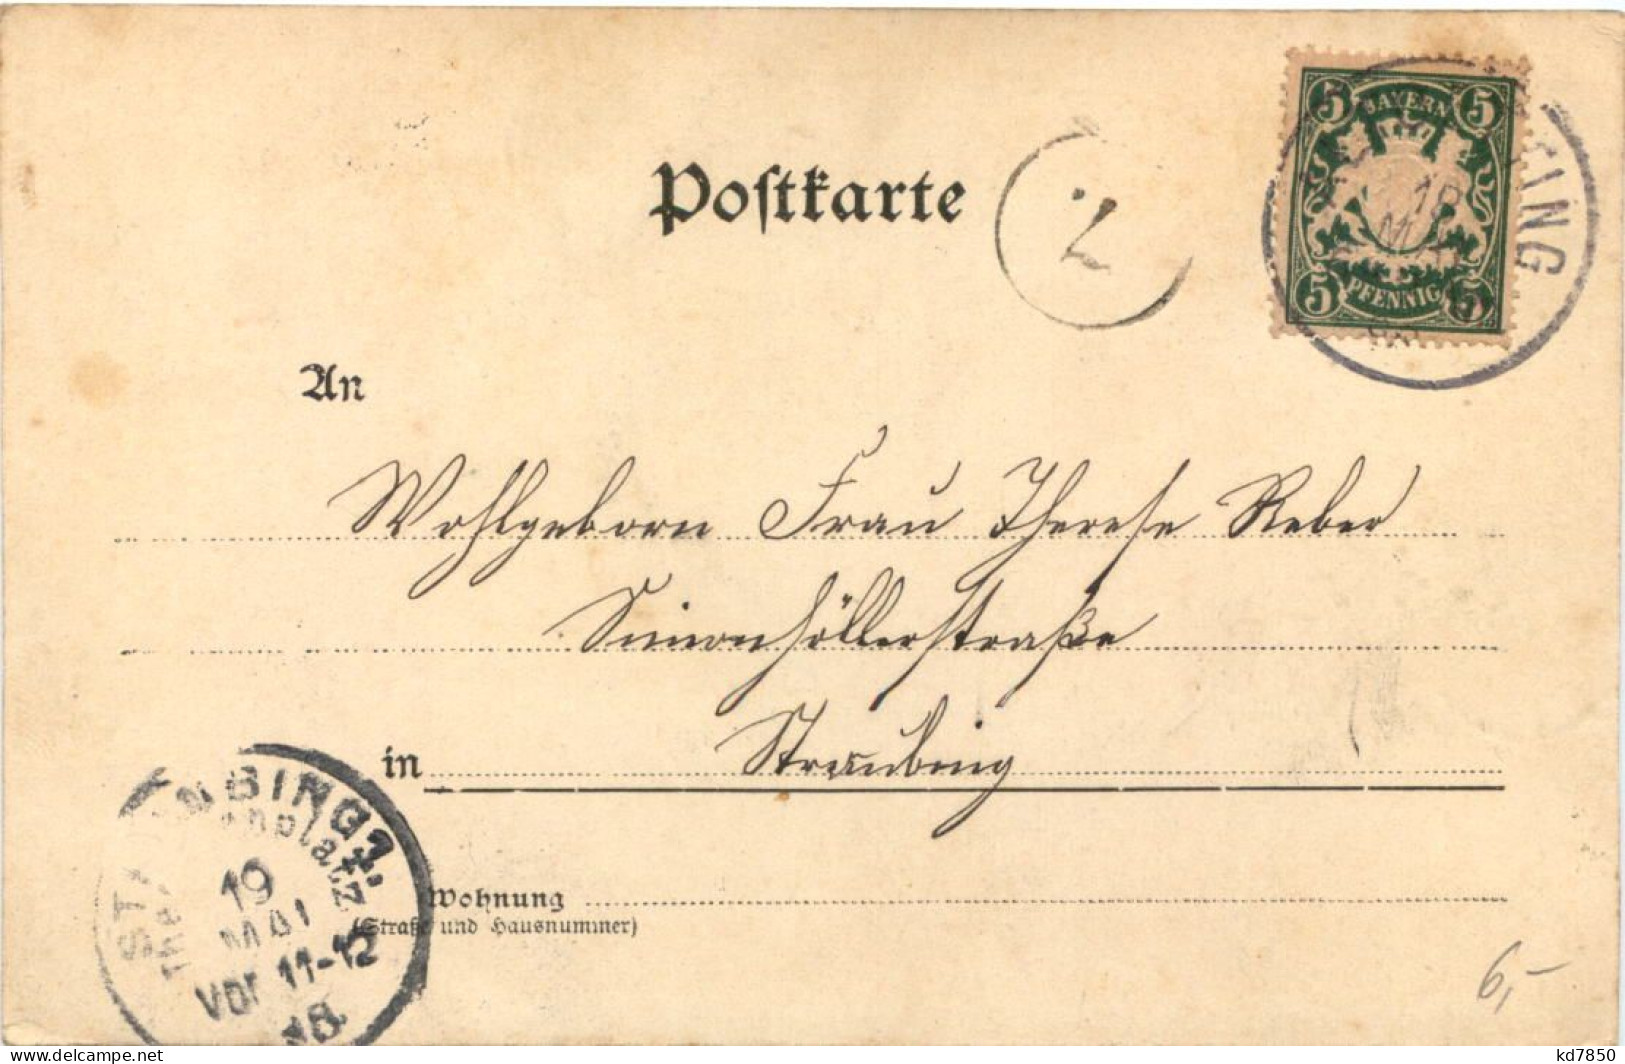 Postkarte
7.
5 BAYERN 5
5 PFENNIG 5
18
MAI
TING
An
Wohlgeborn Frau Therese Reber
Simonhöllerstraße
in Straubing
STRAUBING 1.
19
MAI
Vor 11-12
98.
Wohnung
(Straße und Hausnummer)
6,-
www.delcampe.net
kd7850